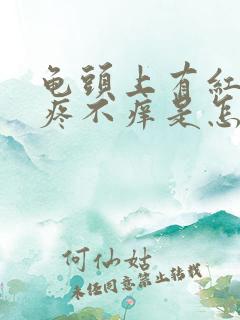 龟頭上有紅
疼不痒是怎
何仙姑
未经同意禁止转载